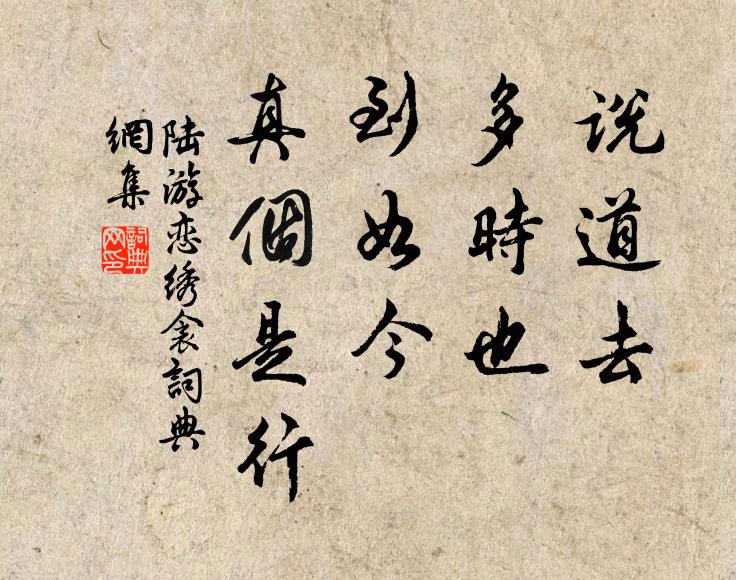 说道去
多時也
到如今
真個是行
陆游恋绣衾詞典
網集
詞典
网印